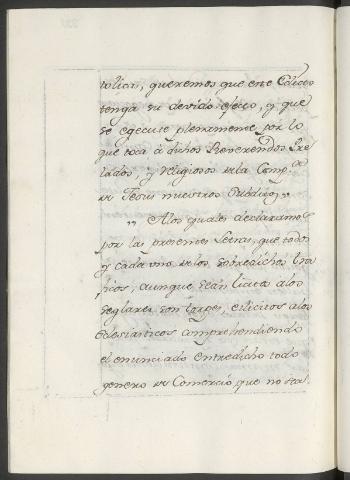 tolicas, queremos que este Edicto
tenga su devido efecto, y que
se egecute plenamente por lo
que toca à dichos Reverendos Pre
lados, y religiosos de la Comp.ª
de Jesus nuestros subditos,,
,, A los quales declaramos
por las presentes Letras, que todos
y cada uno de los sobredichos tra
ficos, aunque sean licitos a los
seglares son torpes, e ilicitos a los
Eclesiasticos comprehendiendo
el enunciado entredicho todo
genero de Comercio que no sea